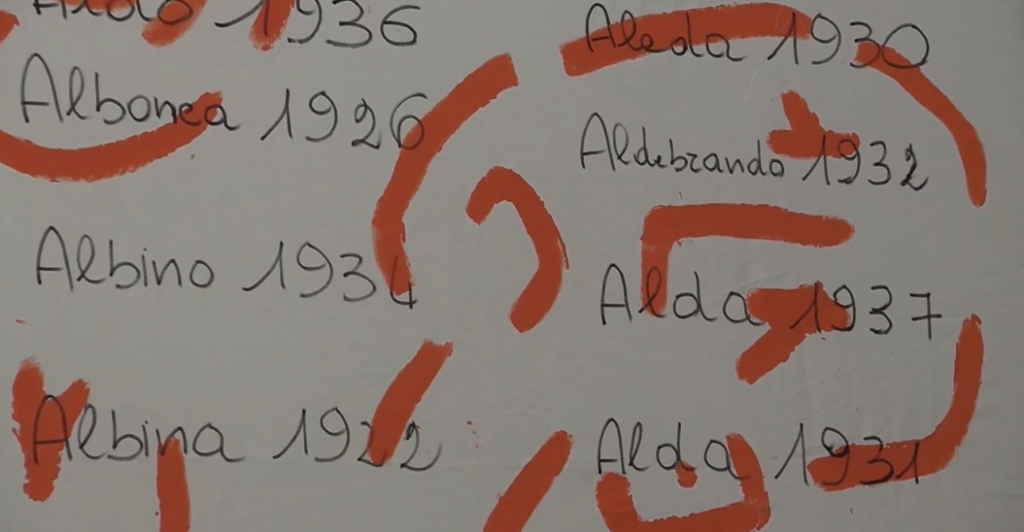 Aldo 1936
Albonea 1926
Albino 1934
Albina 1922
Aleda 1930
Aldebrando 1932
Alda 1937
Alda 1931